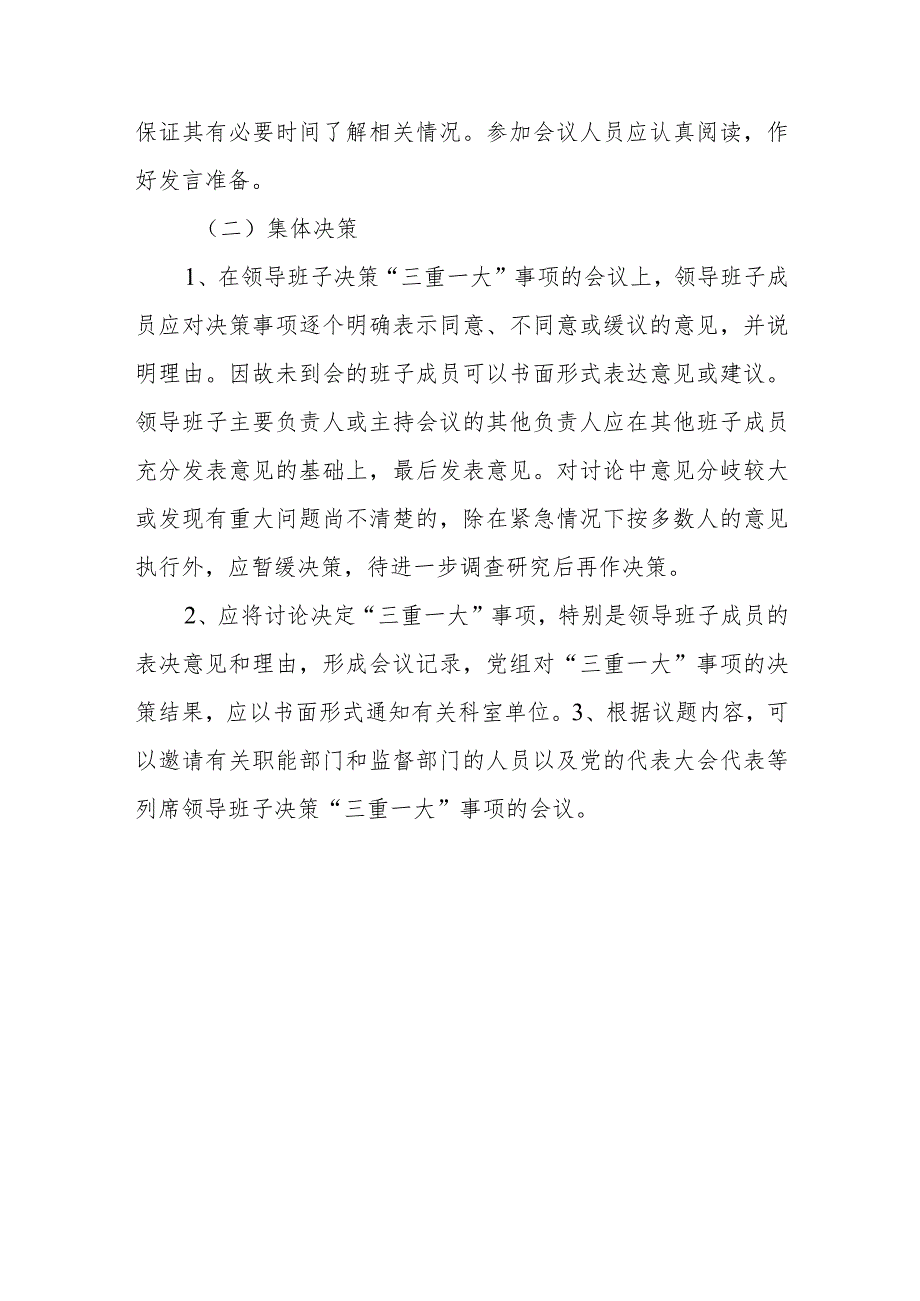 保证其有必要时间了解相关情况。参加会议人员应认真阅读，作
好发言准备。
（二）集体决策
1、在领导班子决策“三重一大”事项的会议上，领导班子成
员应对决策事项逐个明确表示同意、不同意或缓议的意见，并说
明理由。因故未到会的班子成员可以书面形式表达意见或建议。
领导班子主要负责人或主持会议的其他负责人应在其他班子成员
充分发表意见的基础上，最后发表意见。对讨论中意见分歧较大
或发现有重大问题尚不清楚的，除在紧急情况下按多数人的意见
执行外，应暂缓决策，待进一步调查研究后再作决策。
2、应将讨论决定“三重一大”事项，特别是领导班子成员的
表决意见和理由，形成会议记录，党组对“三重一大”事项的决
策结果，应以书面形式通知有关科室单位。3、根据议题内容，可
以邀请有关职能部门和监督部门的人员以及党的代表大会代表等
列席领导班子决策“三重一大”事项的会议。